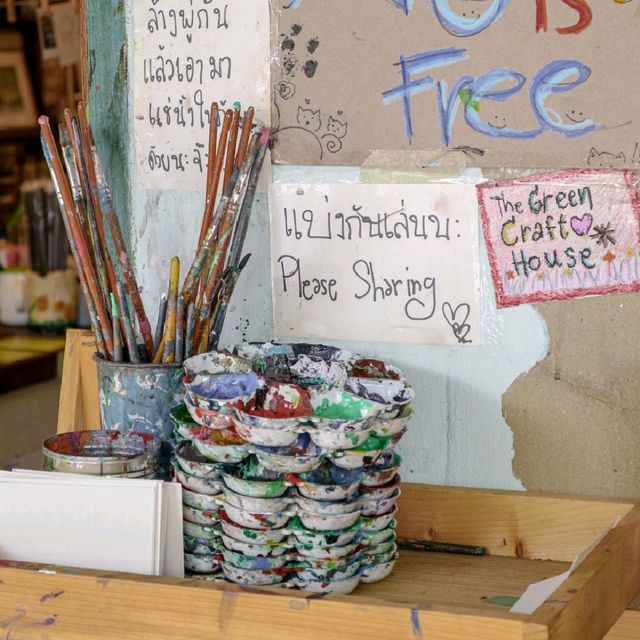 ล้างพู่กัน
แล้วเอามา
is
Free
แบ่งกันเล่นนะ
Please Sharing
The Green
Craft
House